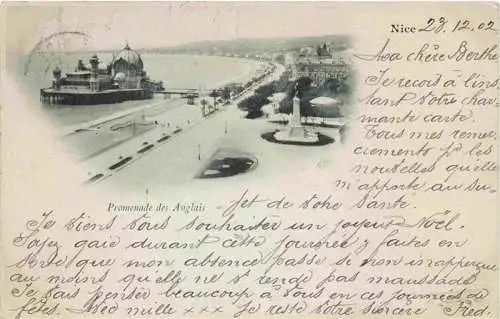 Nice 23.12.02
Ma chère Berthe
Je reçoit à l'ins
tant votre char
mante carte.
Tous mes remer
ciements p. les
nouvelles qu'elle
m'apporte au su-
Promenade des Anglais
jet de votre santé.
Je viens vous souhaiter un joyeux Noël.
Soyez gaie durant cette journée & faites en
sorte que mon absence passe si non inapperçue
au moins qu'elle ne vs rende pas maussade.
Je vais penser beaucoup à vous en ces journées de
fêtes. Med mille xxx Je reste votre sincère Fred.